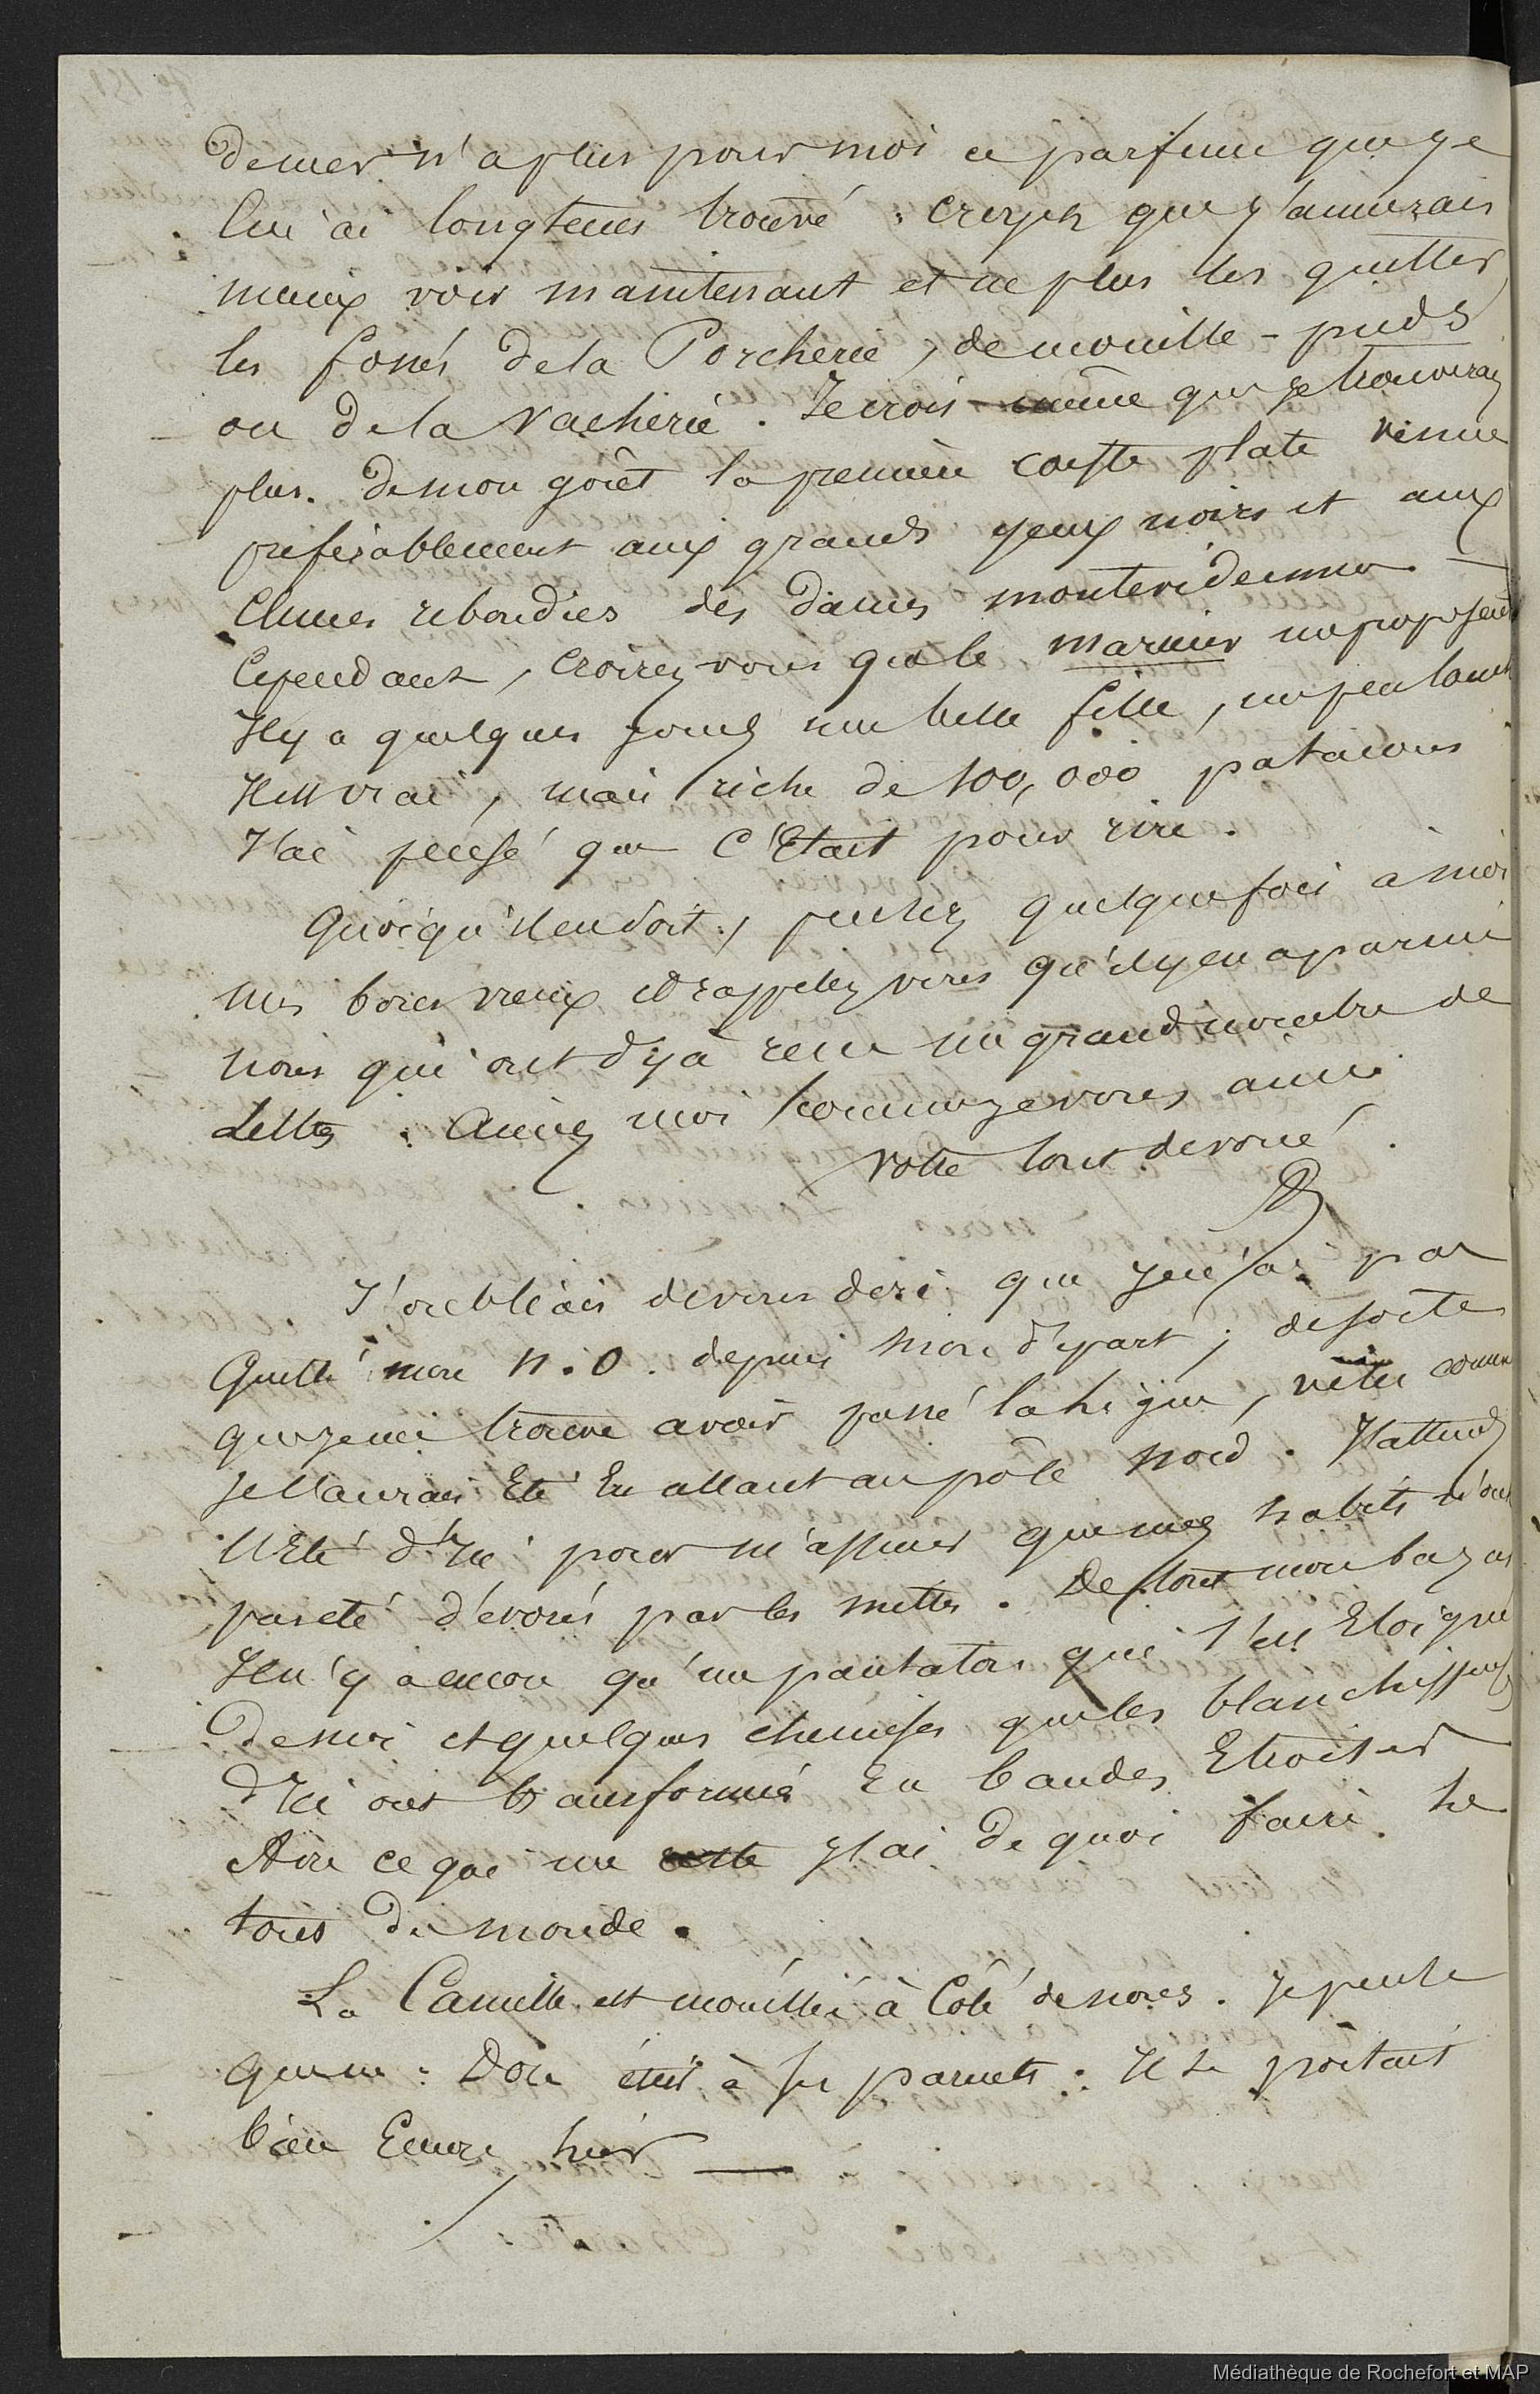 de mer n'a plus pour moi ce parfum que je
lui ai longtems trouvé : croyez que j'aimerais
mieux voir maintenant et ne plus les quitter
les fossés de la Porcherie, de mouille-pieds
ou de la Vacherie. Je crois même que je trouverais
plus de mon goût la première coiffe plate venue
préférablement aux grands yeux noirs et aux
rebondies des dames montevideennes.
Cependant, croirez vous que le marnier me proposait
Il y a quelques jours une belle fille, un peu
Il est vrai, mais riche de 100,000 patacons
J'ai pensé que C'Etait pour rire.
Quoiqu'il en soit, pensez quelquefois à moi
mes bons vieux et rappelez vous qu'il y en a parmi
nous qui ont déjà reçu un grand nombre de
Lettres. Aimez moi comme je vous aime
Votre tout devoué.
J'oubliais de vous dire que je n'ai pas
Quitté mon N.O. depuis mon départ ; de sorte
que je me trouve avoir passé la ligne, vêtu comme
Je l'aurais Eté En allant au pôle nord. J'attends
l'Eté d'Ici pour m'assurer que mes habits n'ont
pas été dévorés par les mittes. De tout mon bazar
Il n'y a encore qu'un pantalon qui s'est Eloigné
de moi et quelques chemises que les blanchisseuses
d'Ici ont transformés En bandes Etroites
Avec ce qui me reste J'ai de quoi faire le
tour du monde.
La Camille est mouillée à Côté de nous. Je pense
que m : Dore écrit à ses parents : Il se portait
bien Encore hier —
Médiathèque de Rochefort et MAP